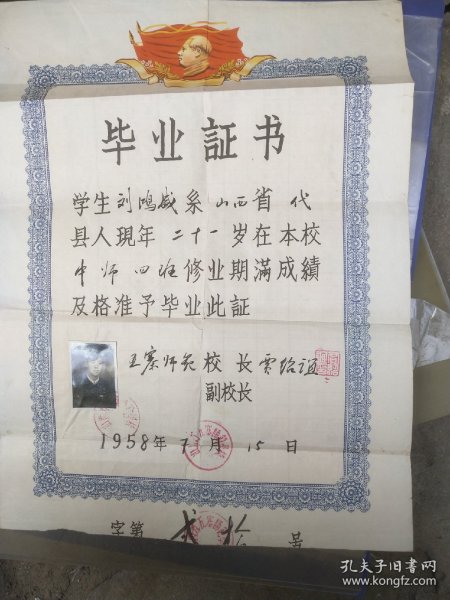 毕业証书
学生刘鸿威系山西省代
县人現年二十一岁在本校
中师四班修业期滿成績
及格准予毕业此証
五寨师范校長贾绍谊
副校長
1958年7月15日
字第 貳 拾 号
孔夫子旧书网
www.kongfz.com